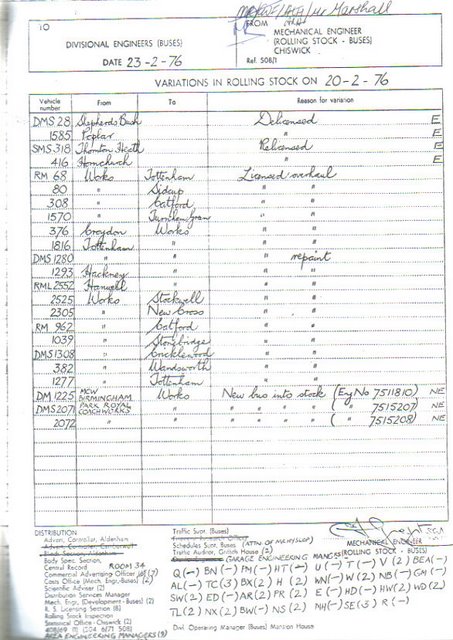 Marshall
10
TO
DIVISIONAL ENGINEERS (BUSES)
DATE 23-2-76
FROM
MECHANICAL ENGINEER
(ROLLING STOCK - BUSES)
CHISWICK
Ref. 508/1
VARIATIONS IN ROLLING STOCK ON 20-2-76
Vehicle number From To Reason for variation
DMS 28 Shepherds Bush Delicensed E
1585 Poplar " E
SMS 318 Thornton Heath Relicensed E
416 Hornchurch " E
RM 68 Works Tottenham Licensed overhaul
80 " Sidcup " "
308 " Catford " "
1570 " Turnham Green " "
376 Croydon Works " "
1816 Tottenham " " "
DMS 1280 " " " repaint
1293 Hackney " " "
RML 2552 Hanwell " " "
2525 Works Stockwell " "
2305 " New Cross " "
RM 962 " Catford " "
1039 " Stonebridge " "
DMS 1308 " Cricklewood " "
382 " Wandsworth " "
1277 " Tottenham " "
DM 1225 MCW BIRMINGHAM Works New bus into stock (Eng No 7511810) NE
DMS 2071 PARK ROYAL COACHWORKS " " " " " ( " 7515207) NE
2072 " " " " " " ( " 7515208) NE
DISTRIBUTION
Advert. Controller, Aldenham
Body Spec. Section
Central Record ROOM 34
Commercial Advertising Officer
Costs Office (Mech. Engr. Buses)
Scientific Adviser (2)
Distribution Services Manager
Mech. Engr. (Development - Buses) (2)
R. S. Licensing Section (8)
Rolling Stock Inspection
Statistical Office - Chiswick (2)
AREA ENGINEERING MANAGERS (9)
Traffic Supt. (Buses)
Schedules Supt. Buses
Traffic Auditor, Griffith House (2)
GARAGE ENGINEERING MANGRS
MECHANICAL ENGINEER
(ROLLING STOCK - BUSES)
Q(-) BN(-) PM(-) HT(-) U(-) T(-) V(2) BEA(-)
AL(-) TC(3) BX(2) H(2) WN(-) W(2) NB(-) GM(-)
SW(2) ED(-) AR(2) PR(2) E(-) HD(-) HW(2) WD(2)
TL(2) NX(2) BW(-) NS(2) NH(-) SE(3) R(-)
Divl Operating Manager (Buses) Mansion House